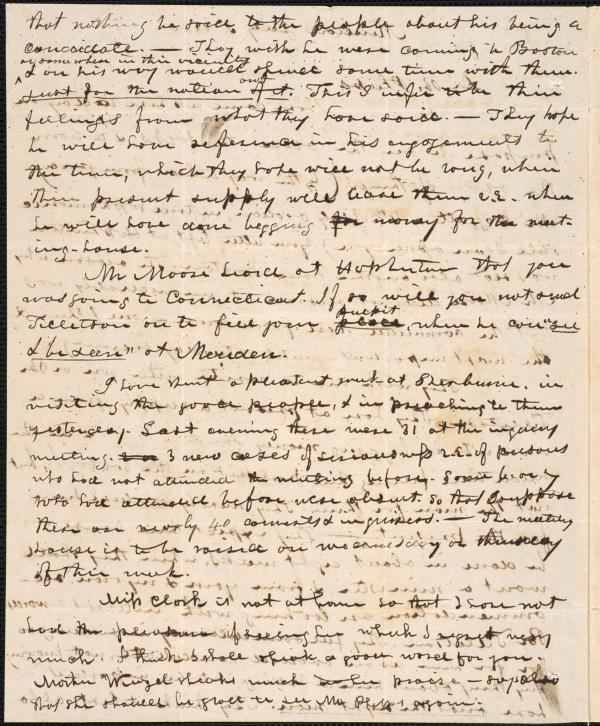 that nothing be said to the people about his being a
candidate. — They wish he were coming to Boston
or somewhere in this vicinity
& on his way would spend some time with them.
just for the notion of it. This I infer to be their
feelings from what they have said. — They hope
he will have reference in his engagements to
the time, which they hope will not be long, when
their present supply will leave them i.e. when
he will have done begging for money for the meet-
ing-house.
Mr Moore heard at Hopkinton that you
was going to Connecticut. If so will you not send
Tillotson on to fill your place pulpit, when he can "see
& be seen" at Meriden.
I have spent a pleasant week at Sherburne, in
visiting the good people, & in preaching to them
yesterday. Last evening there were 81 at the inquiry
meeting. 3 new cases of seriousness i.e. of persons
who had not attended the meeting before. Some 6 or 7
who had attended before were absent. so that I suppose
there are nearly 40 converts & inquirers. — The meeting
house is to be raised on wednesday or thursday
of this week.
Miss Clark is not at home so that I have not
had the pleasure of seeing her which I regret very
much. I think I shall speak a good word for you.
Mother speaks much in her praise — say also
that she should be glad to see Mr Phelps again.